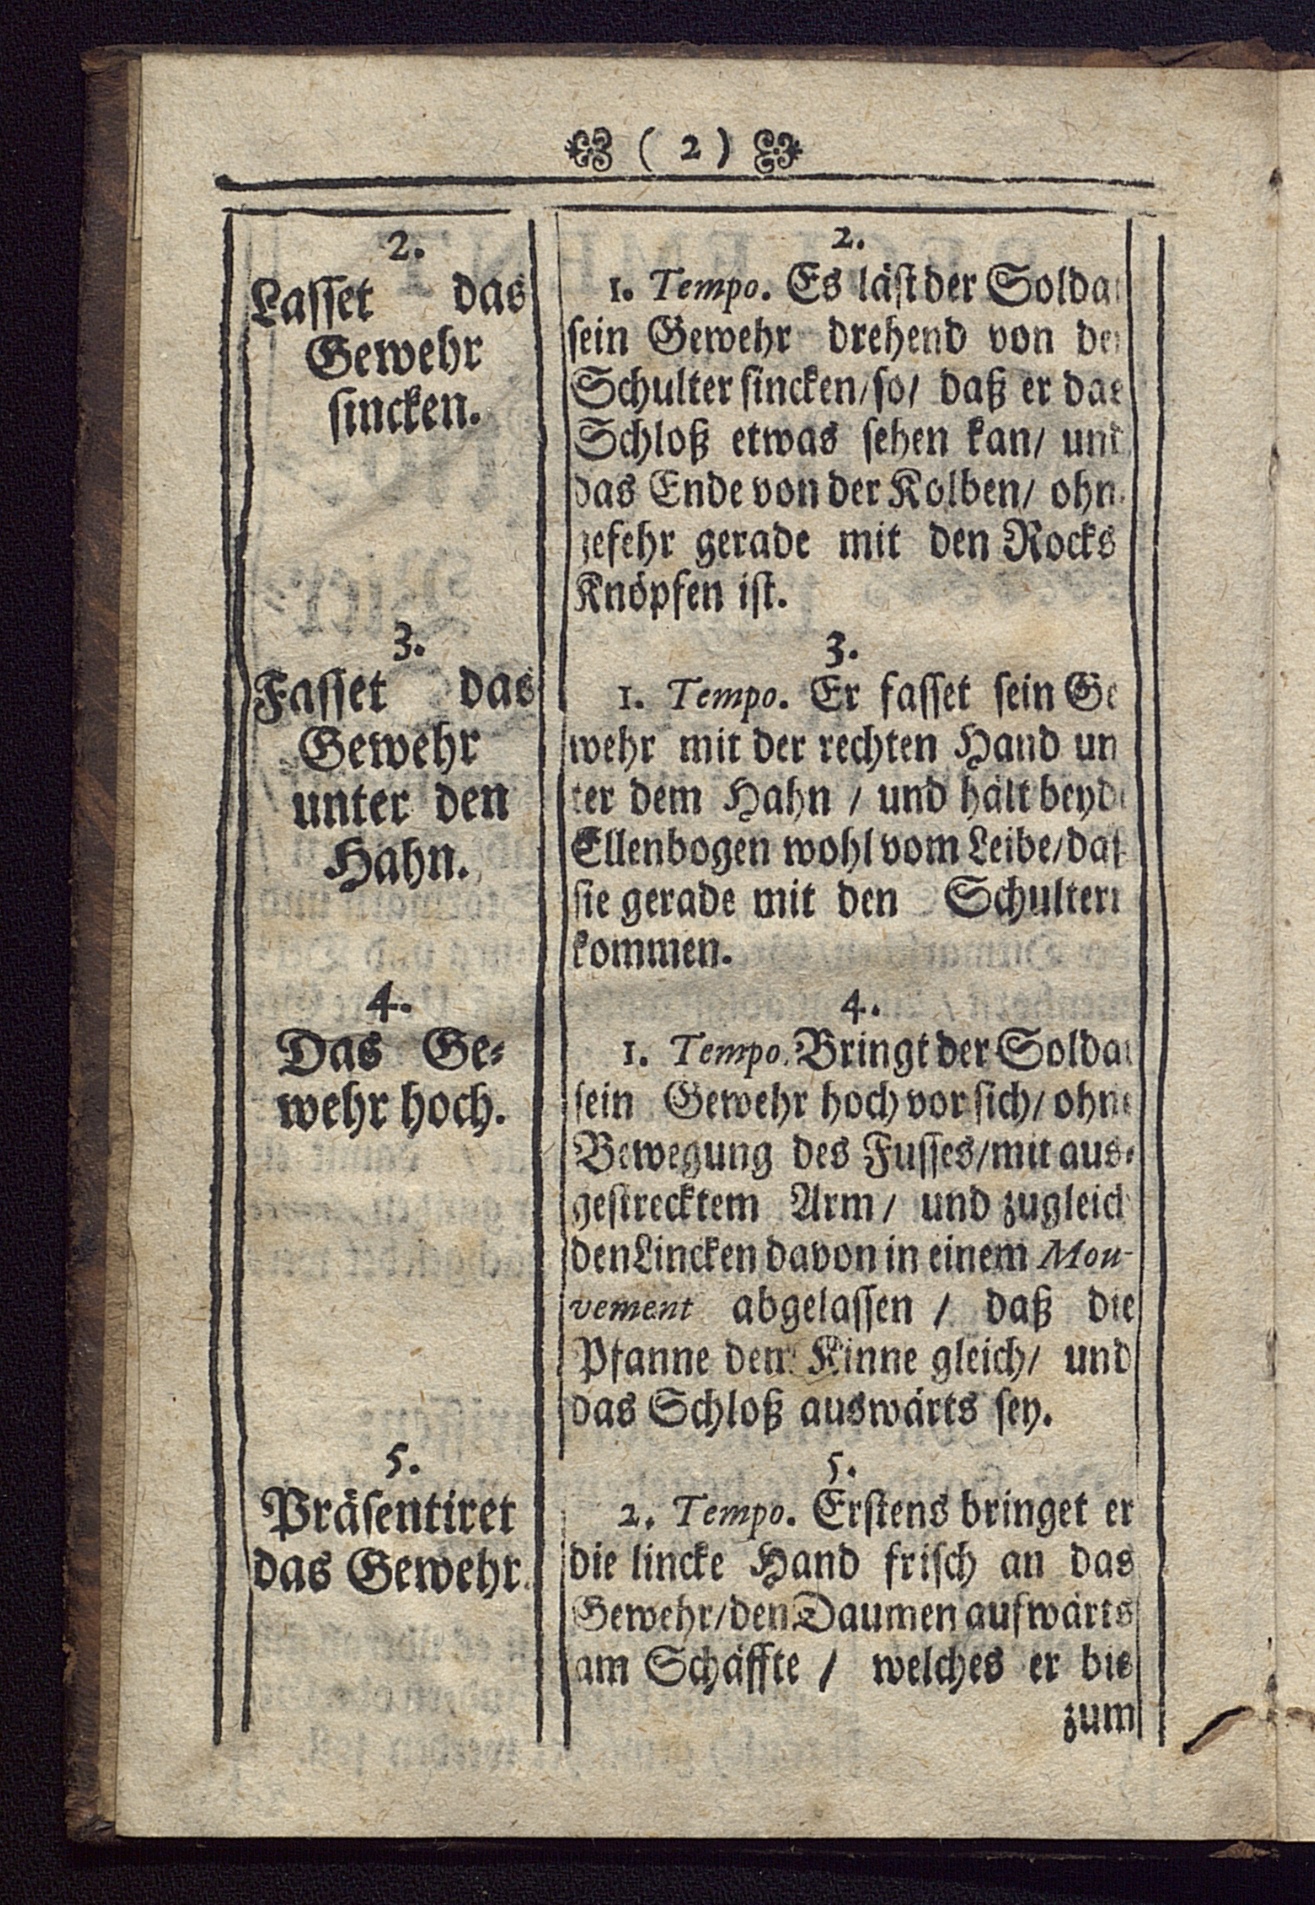 ( 2 )
2.
Lasset das
Gewehr
sincken.
3.
Fasset das
Gewehr
unter den
Hahn.
4.
Das Ge-
wehr hoch.
5.
Präsentiret
das Gewehr.
2.
1. Tempo. Es läst der Soldat
sein Gewehr drehend von der
Schulter sincken/so/ daß er das
Schloß etwas sehen kan/ und
das Ende von der Kolben/ ohn-
gefehr gerade mit den Rocks
Knöpfen ist.
3.
1. Tempo. Er fasset sein Ge
wehr mit der rechten Hand un
ter dem Hahn / und hält beyde
Ellenbogen wohl vom Leibe/daß
sie gerade mit den Schultern
kommen.
4.
1. Tempo. Bringt der Soldat
sein Gewehr hoch vor sich/ ohne
Bewegung des Fusses/mit aus-
gestrecktem Arm/ und zugleich
den Lincken davon in einem Mou-
vement abgelassen / daß die
Pfanne dem Kinne gleich/ und
das Schloß auswärts sey.
5.
2. Tempo. Erstens bringet er
die lincke Hand frisch an das
Gewehr/den Daumen aufwärts
am Schäffte / welches er bis
zum